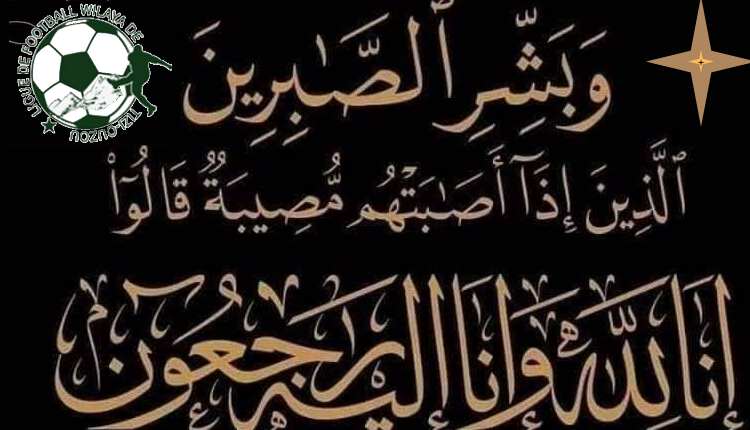 LIGUE DE FOOTBALL WILAYA DE
TIZI-OUZOU
وَبَشِّرِ ٱلصَّـٰبِرِينَ
ٱلَّذِينَ إِذَآ أَصَـٰبَتْهُم مُّصِيبَةٌ قَالُوٓا۟
إنا لله وإنا إليه راجعون